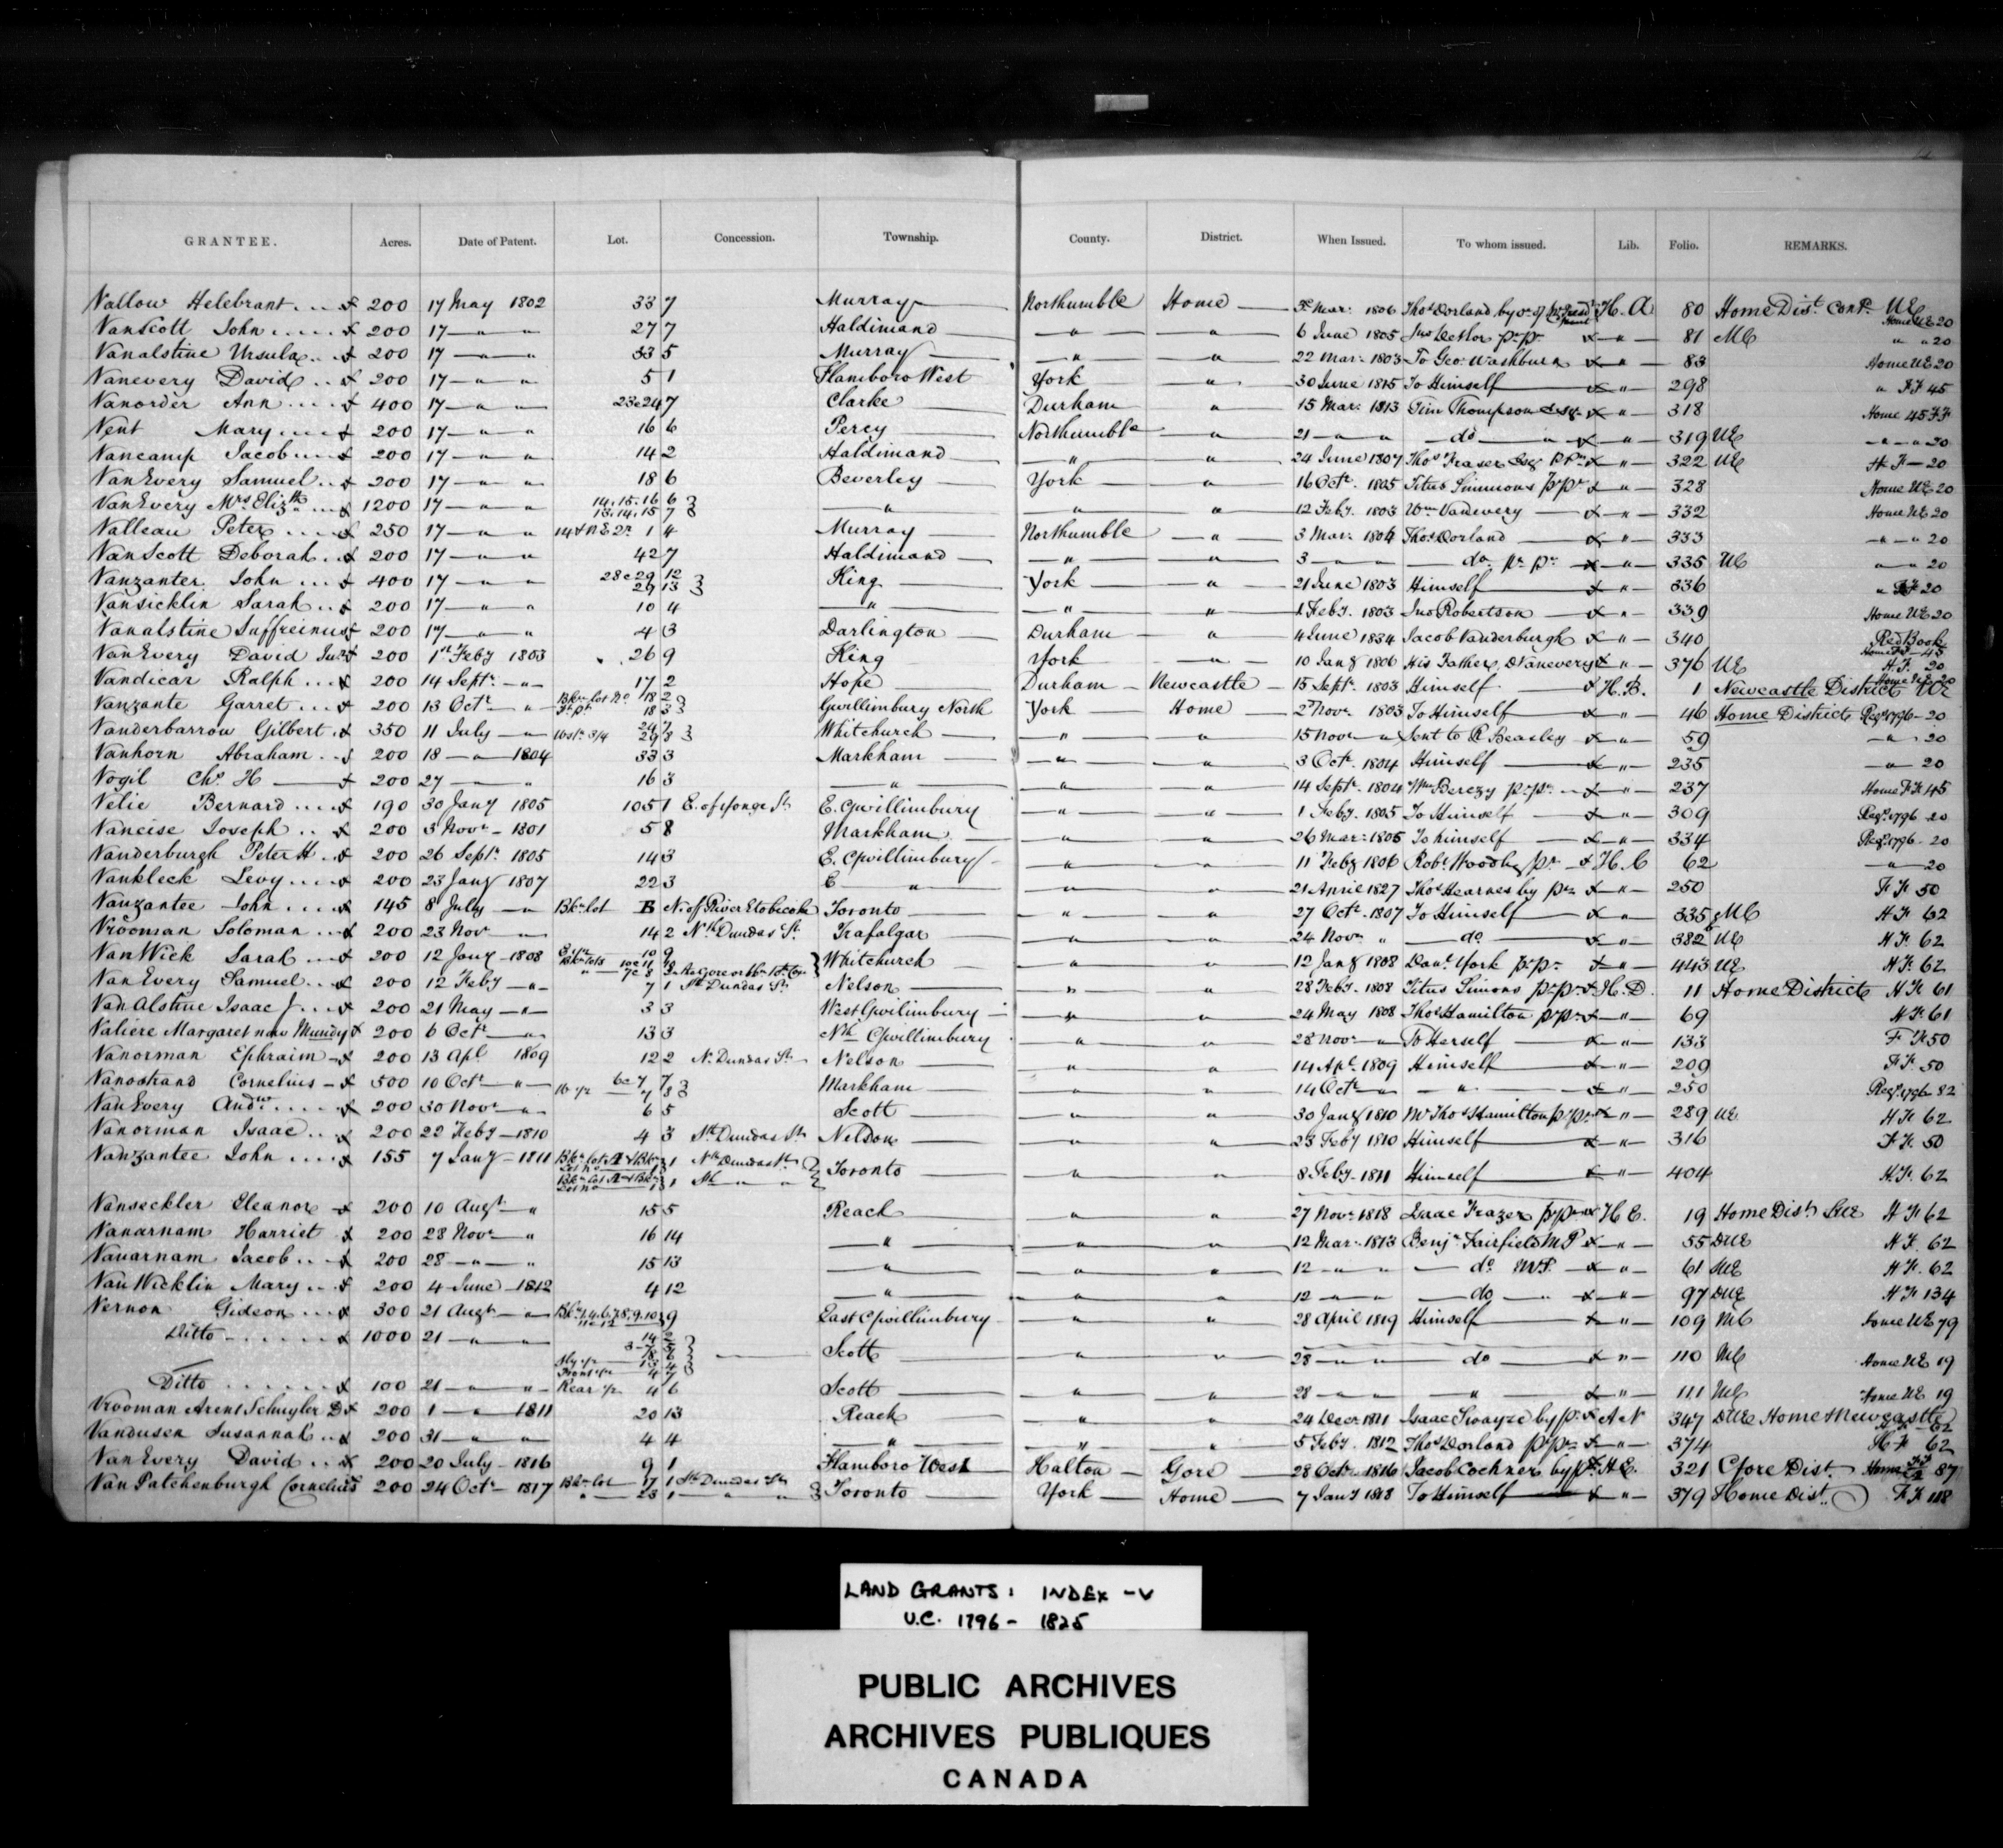 GRANTEE. Acres. Date of Patent. Lot. Concession. Township. County. District. When Issued. To whom issued. Lib. Folio. REMARKS.
Vallow Helebrant 200 17 May 1802 33 7 Murray Northumble Home Mar. 1806 Thos Dorland H. A 80 Home Dist. Cont. UE
VanScott John 200 17 " " 27 7 Haldimand " " 6 June 1805 " 81 Home UE 20
Vanalstine Ursula 200 17 " " 33 5 Murray " " 22 Mar. 1803 To Geo. Washburn " 83 " " 20
Vanevery David 200 17 " " 5 1 Flamboro West York " 30 June 1815 To Himself " 298 Home UE 20
Vanorder Ann 400 17 " " 23 & 24 7 Clarke Durham " 15 Mar. 1813 Tim Thompson Esq. " 318 " FF 45
Vent Mary 200 17 " " 16 6 Percy Northumble " 21 " " do " " 319 UE Home 45 FF
Vancamp Jacob 200 17 " " 14 2 Haldimand " " 24 June 1807 Thos Fraser Esq " 322 UE " " 20
VanEvery Samuel 200 17 " " 18 6 Beverley York " 16 Octr. 1805 Titus Simmons " 328 20
VanEvery Mrs Elizth 1200 17 " " 14.15.16 6 13.14.15 7 " " " 12 Feby. 1803 Wm Vanevery " 332 Home UE 20
Valleau Peter 250 17 " " 1 4 Murray Northumble " 3 Mar. 1804 Thos Dorland " 333 Home UE 20
VanScott Deborah 200 17 " " 42 7 Haldimand " " 3 " " do pr. pr. " 335 UE " " 20
Vanzanter John 400 17 " " 28 & 29 12 29 13 King York " 21 June 1803 Himself " 336 " " 20
Vansicklin Sarah 200 17 " " 10 4 " " " 1 Feby. 1803 Jno Robertson " 339 20
Vanalstine Suffreinus 200 17 " " 4 3 Darlington Durham " 4 June 1834 Jacob Vanderburgh " 340 Home UE 20
VanEvery David Junr 200 1st Feby 1803 26 9 King York " 10 Jany 1806 His Father, D Vanevery " 376 UE Red Book
Vandicar Ralph 200 14 Septr. " 17 2 Hope Durham Newcastle 15 Septr. 1803 Himself H. B. 1 Newcastle District
Vanzante Garret 200 13 Octr. " Bkn lot No 18 2 18 3 Gwillimbury North York Home 2 Novr. 1803 To Himself " 46 Home District Regr. 1796 - 20
Vanderbarrow Gilbert 350 11 July " 24 7 8 Whitchurch " " 15 Novr " Sent to R Beasley " 59 " 20
Vanhorn Abraham 200 18 " 1804 33 3 Markham " " 3 Octr. 1804 Himself " 235 " 20
Vogil Chs H 200 27 " " 16 3 " " " 14 Septr. 1804 Wm Berczy pr. pr. " 237 Home FF 45
Velie Bernard 190 30 Jany 1805 105 1 E. of Yonge St. E. Gwillimbury " " 1 Feby. 1805 To Himself " 309 Regr. 1796 20
Vancise Joseph 200 3 Novr 1801 5 8 Markham " " 26 Mar. 1805 To himself " 334 Regr. 1796 - 20
Vanderburgh Peter H. 200 26 Septr. 1805 14 3 E. Gwillimbury " " 11 Feby 1806 H. C 62 " 20
Vankleek Levy 200 23 Jany 1807 22 3 E " " " 21 April 1827 Thos Hearnes by pr. " 250 FF 50
Vanzantee John 145 8 July " Bkn lot B N. of River Etobicoke Toronto " " 27 Octr. 1807 To Himself " 335 62
Vrooman Soloman 200 23 Nov " 14 2 Nth Dundas St. Trafalgar " " 24 Novr " do " 382 UE 62
VanWick Sarah 200 12 Jany 1808 Whitchurch " " 12 Jany 1808 Danl York pr. pr. " 443 UE 62
VanEvery Samuel 200 12 Feby " 7 1 Dundas St. Nelson " " 28 Feby. 1808 Titus Simons pr. pr. H. D. 11 Home District 61
Van Alstine Isaac J. 200 21 May " 3 3 West Gwilimbury " " 24 May 1808 Thos Hamilton pr. pr. " 69 61
Valiere Margaret now Mundy 200 6 Octr " 13 3 Nth Gwillimbury " " 28 Novr " To Herself " 133 FF 50
Vanorman Ephraim 200 13 Apl. 1809 12 2 N. Dundas St. Nelson " " 14 Apl. 1809 Himself " 209 FF. 50
Vanostrand Cornelius 500 10 Octr " 6 & 7 7 8 Markham " " 14 Octr " " " 250 Regr. 1796 - 82
VanEvery Andw 200 30 Novr " 6 5 Scott " " 30 Jany 1810 Mr Thos Hamilton pr. pr. " 289 UE 62
Vanorman Isaac 200 22 Feby 1810 4 3 Sth Dundas St. Nelson " " 23 Feby 1810 Himself " 316 FF. 50
Vanzantee John 155 7 Jany 1811 Nth Dundas St. Toronto " " 8 Feby. 1811 Himself " 404 62
Vanseckler Eleanor 200 10 Augt. " 15 5 Reach " " 27 Novr. 1818 Isaac Frazer H. E. 19 Home Dist. 62
Vanarnam Harriet 200 28 Novr. " 16 14 " " " 12 Mar. 1813 Benjn Fairfield M P " 55 DUE 62
Vanarnam Jacob 200 28 " " 15 13 " " " 12 " " do M.P. " 61 62
VanWicklin Mary 200 4 June 1812 4 12 " " " 12 " " do " " 97 DUE 134
Vernon Gideon 300 21 Augt " 9 East Gwillimbury " " 28 April 1819 Himself " 109 UE 79
Ditto 1000 21 " " Scott " " 28 " " do " 110 Home UE 19
Ditto 100 21 " " Rear 4 6 Scott " " 28 " " " " 111 Home UE 19
Vrooman Arent Schuyler 200 1 " 1811 20 13 Reach " " 24 Decr 1811 Isaac Swayze by pr. 347 DUE Home & Newcastle
Vandusen Susannah 200 31 " " 4 4 " " " 5 Feby. 1812 Thos Dorland pr. pr. " 374 62
VanEvery David 200 20 July 1816 9 1 Flamboro West Halton Gore 28 Octr 1816 Jacob Cochner by pr. H. E. 321 Gore Dist. 87
Van Patchenburgh Cornelius 200 24 Octr 1817 Bkn lot 1 Sth Dundas St. " 23 1 " " Toronto York Home 7 Jany 1818 To Himself " 379 Home Dist. 118
LAND GRANTS: INDEX - V
U.C. 1796 - 1825
PUBLIC ARCHIVES
ARCHIVES PUBLIQUES
CANADA